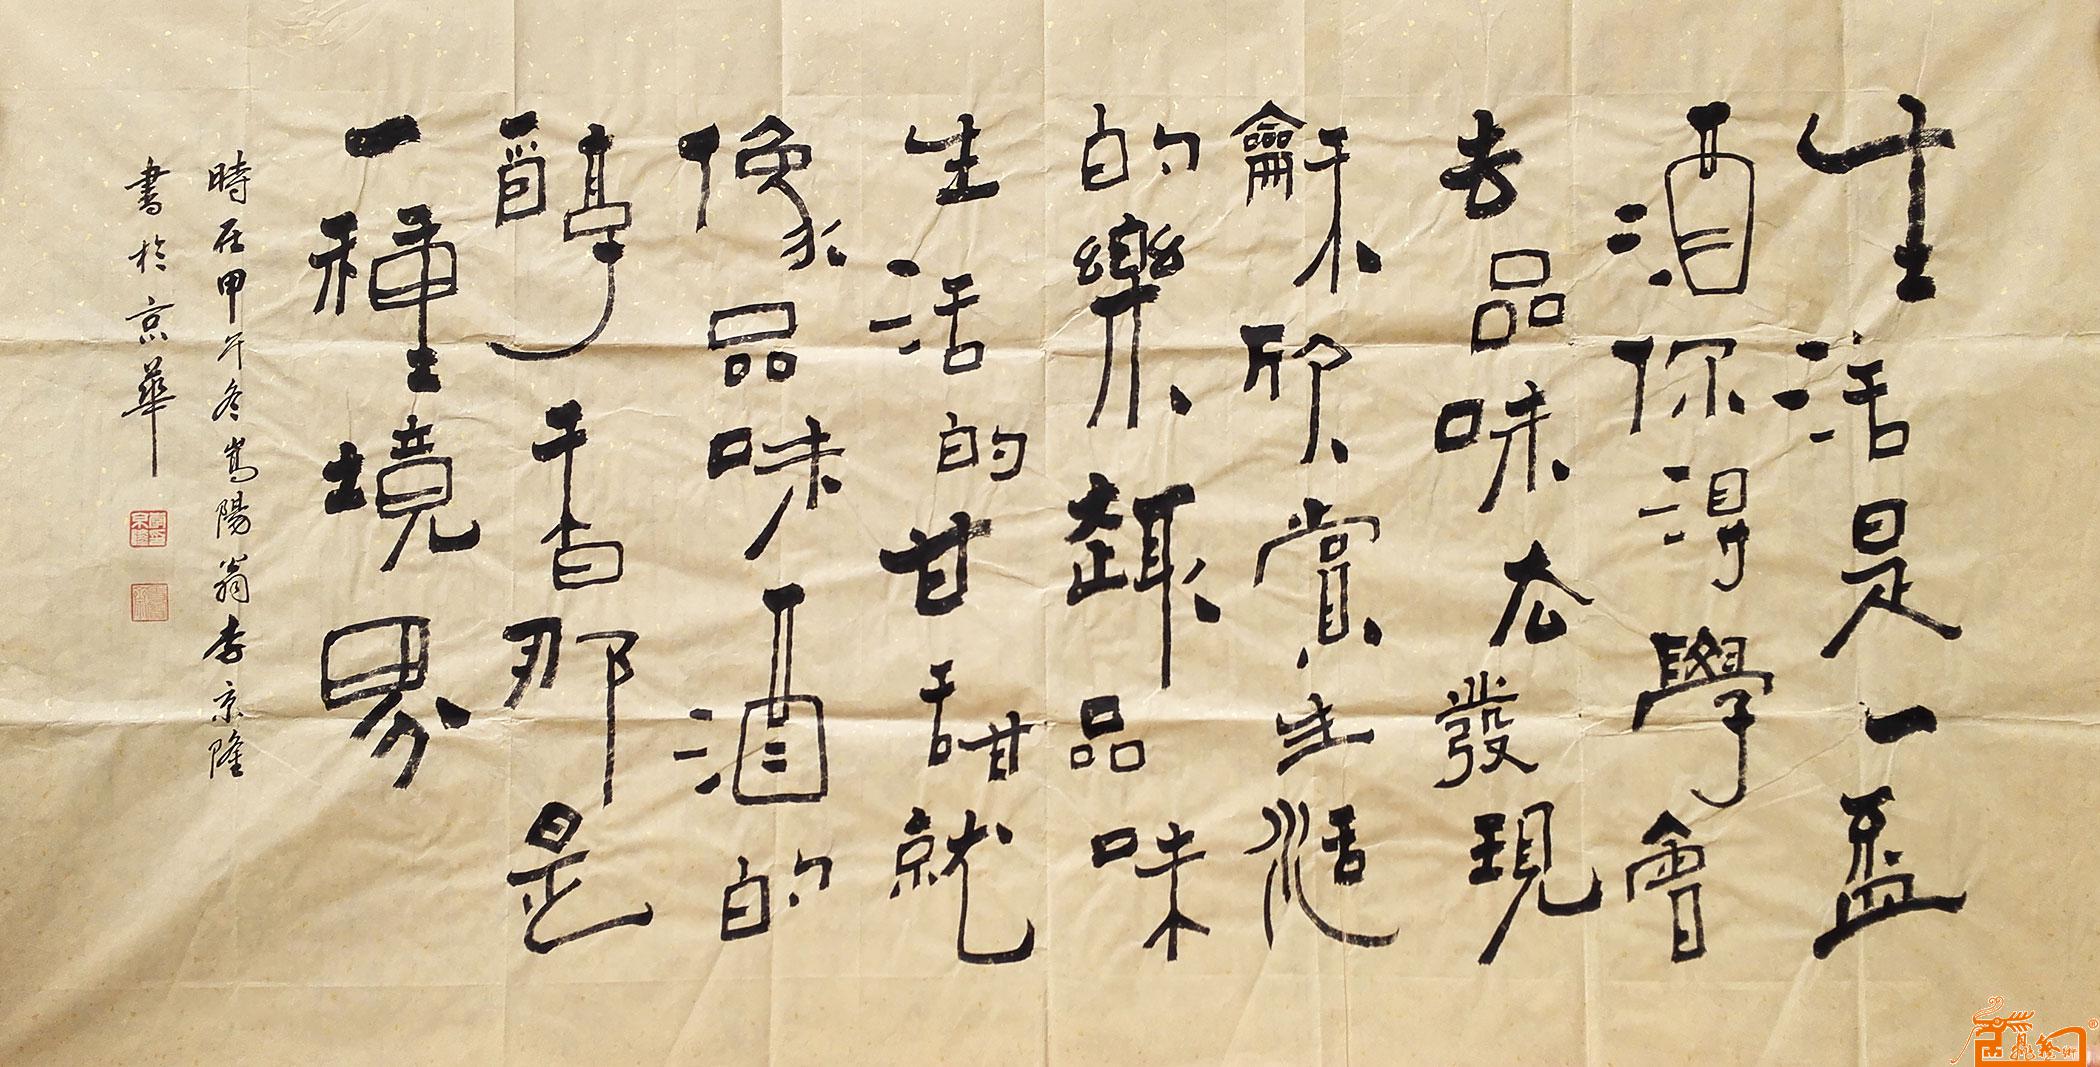 生活是一盃
酒你得學會
去品味去發現
龢欣賞生活
的樂趣品味
生活的甘甜就
像品味酒的
醇香那是
一種境界
時在甲午冬嵩陽翁李京隆
書於京華